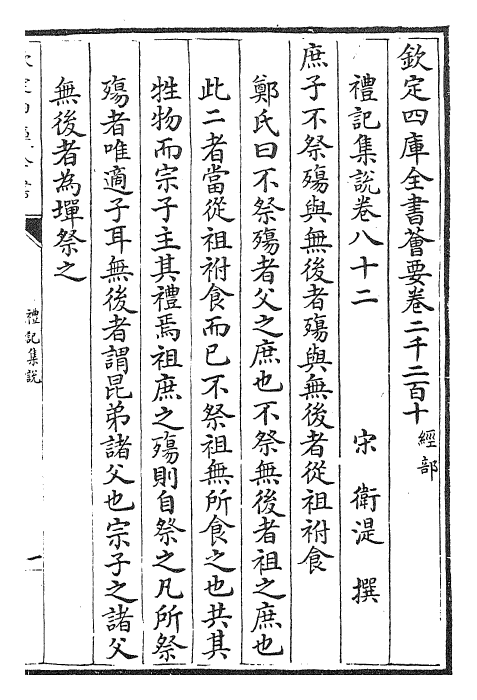 欽定四庫全書薈要卷二千二百十經部
禮記集說卷八十二
宋 衛湜 撰
庶子不祭殤與無後者殤與無後者從祖祔食
鄭氏曰不祭殤者父之庶也不祭無後者祖之庶也
此二者當從祖祔食而已不祭祖無所食之也共其
牲物而宗子主其禮焉祖庶之殤則自祭之凡所祭
殤者唯適子耳無後者謂昆弟諸父也宗子之諸父
無後者為墠祭之
禮記集說
一